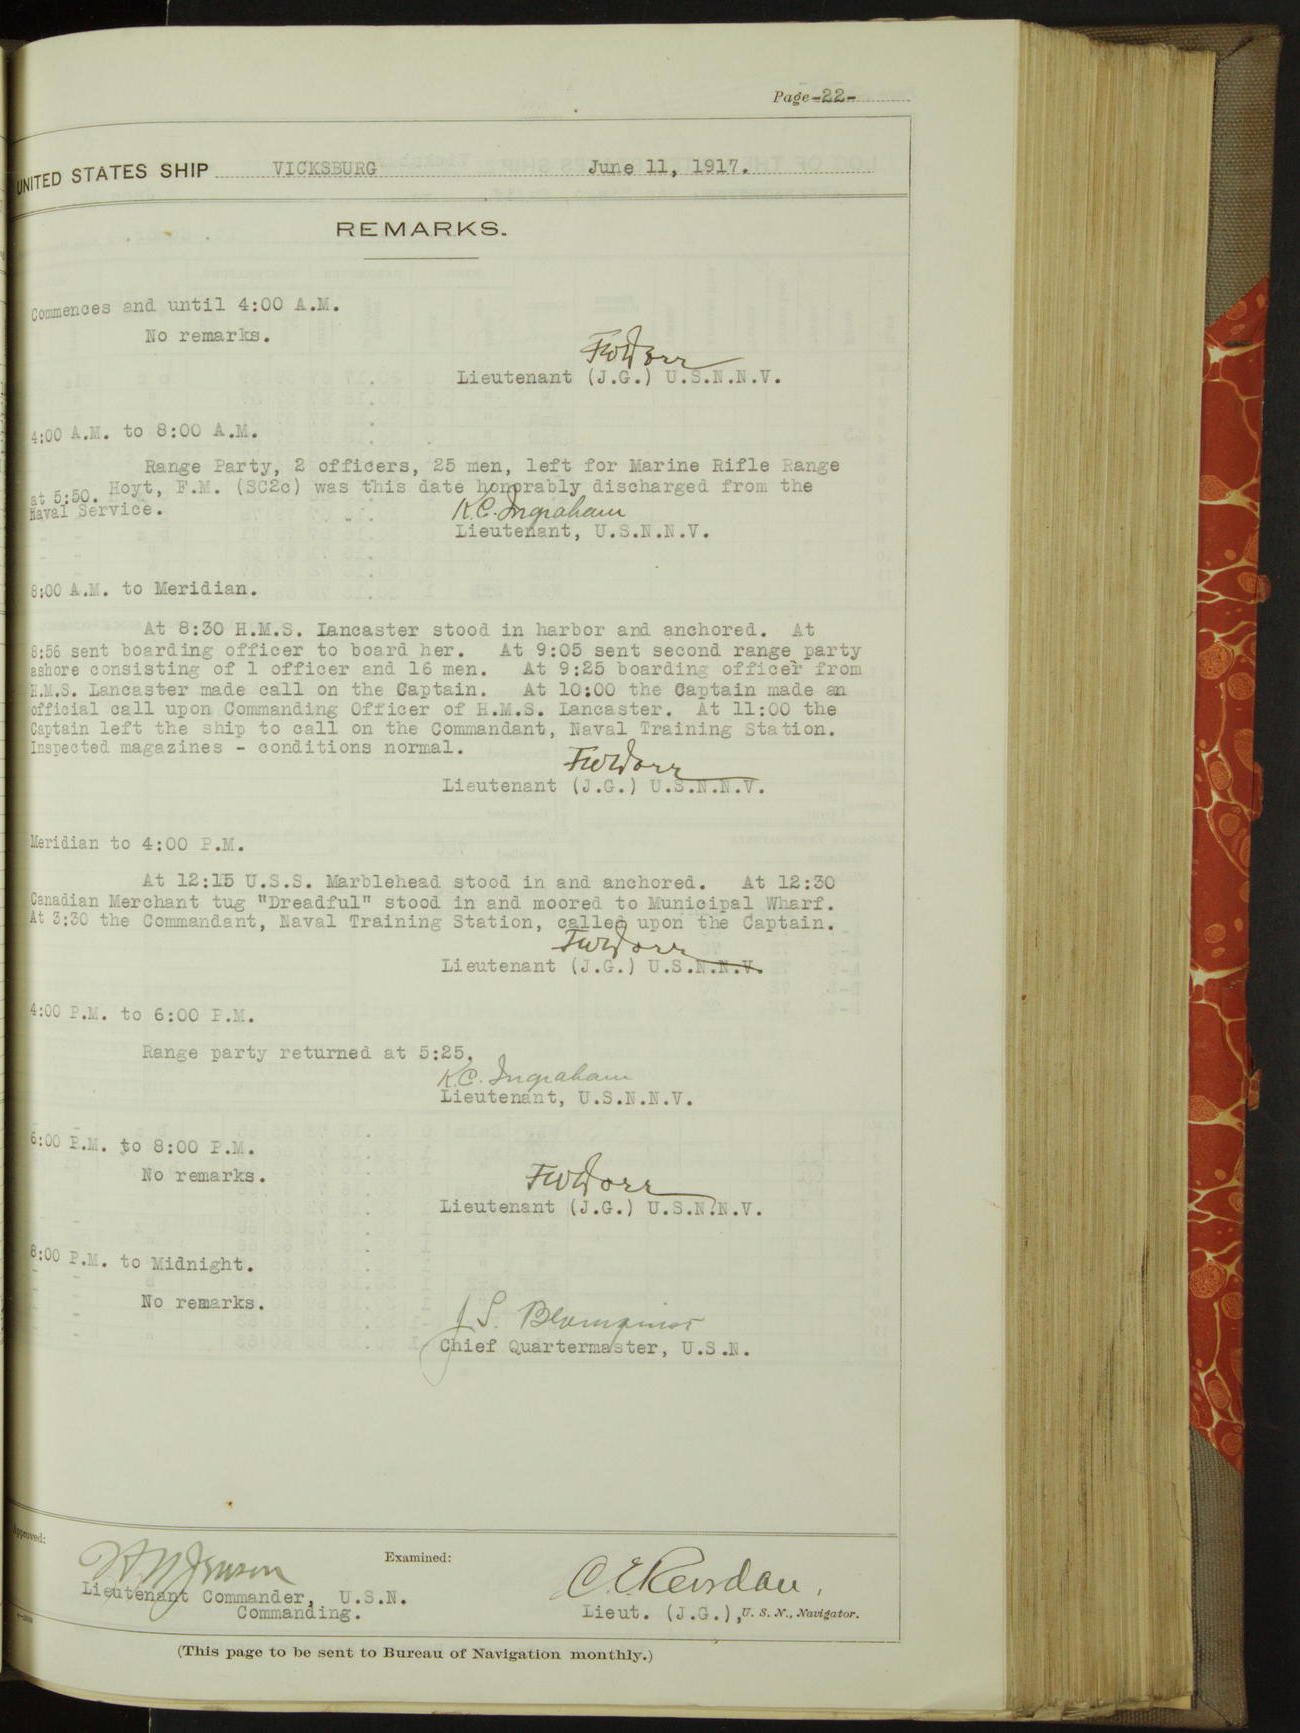 Page-22-
UNITED STATES SHIP VICKSBURG June 11, 1917.
REMARKS.
Commences and until 4:00 A.M.
No remarks.
FWDorr
Lieutenant (J.G.) U.S.N.N.V.
4:00 A.M. to 8:00 A.M.
Range Party, 2 officers, 25 men, left for Marine Rifle Range
at 5:50. Hoyt, F.M. (SC2c) was this date honorably discharged from the
Naval Service.
K.C. Ingraham
Lieutenant, U.S.N.N.V.
8:00 A.M. to Meridian.
At 8:30 H.M.S. Lancaster stood in harbor and anchored. At
8:56 sent boarding officer to board her. At 9:05 sent second range party
ashore consisting of 1 officer and 16 men. At 9:25 boarding officer from
H.M.S. Lancaster made call on the Captain. At 10:00 the Captain made an
official call upon Commanding Officer of H.M.S. Lancaster. At 11:00 the
Captain left the ship to call on the Commandant, Naval Training Station.
Inspected magazines - conditions normal.
FWDorr
Lieutenant (J.G.) U.S.N.N.V.
Meridian to 4:00 P.M.
At 12:15 U.S.S. Marblehead stood in and anchored. At 12:30
Canadian Merchant tug "Dreadful" stood in and moored to Municipal Wharf.
At 3:30 the Commandant, Naval Training Station, called upon the Captain.
FWDorr
Lieutenant (J.G.) U.S.N.N.V.
4:00 P.M. to 6:00 P.M.
Range party returned at 5:25.
K.C. Ingraham
Lieutenant, U.S.N.N.V.
6:00 P.M. to 8:00 P.M.
No remarks.
FWDorr
Lieutenant (J.G.) U.S.N.N.V.
8:00 P.M. to Midnight.
No remarks.
J.S.
Chief Quartermaster, U.S.N.
Approved:
Examined:
Lieutenant Commander, U.S.N.
Commanding.
C.E. Reordan.
Lieut. (J.G.), U. S. N., Navigator.
(This page to be sent to Bureau of Navigation monthly.)